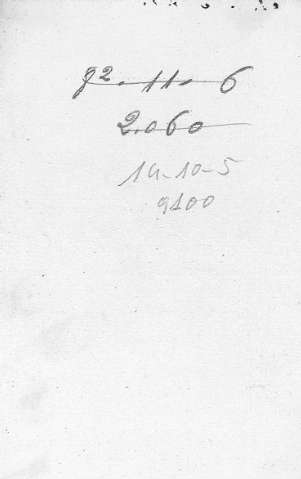 92-11-6
2.060
14-10-5
9100